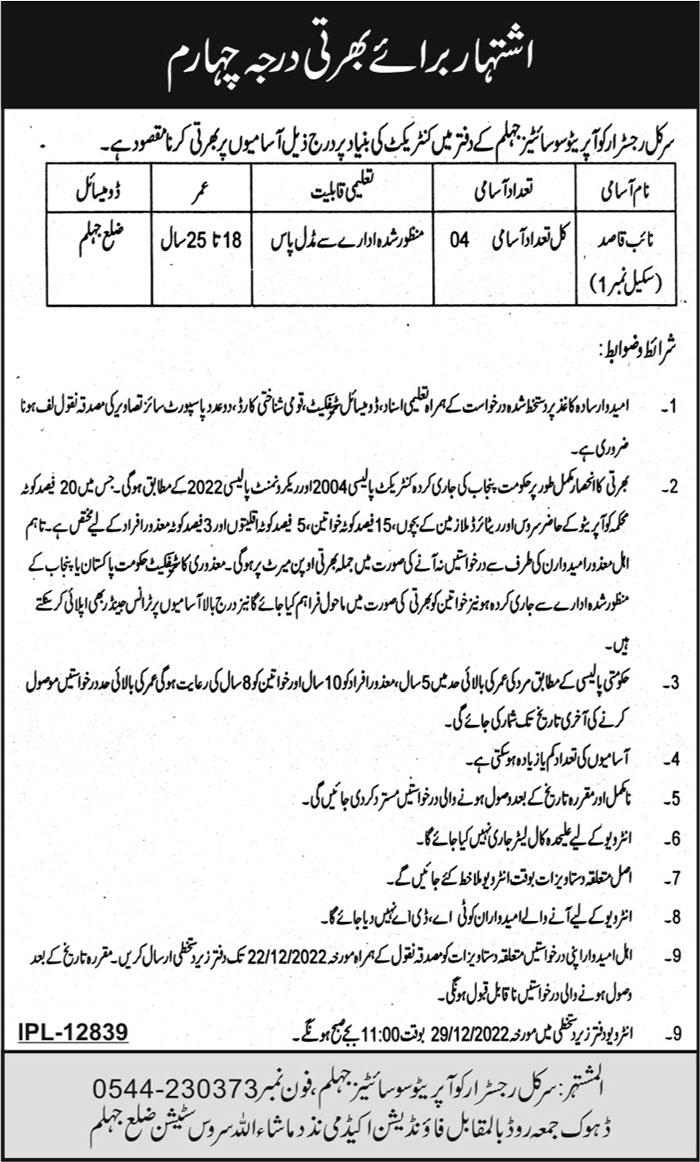 اشتہار برائے بھرتی درجہ چہارم
سرکل رجسٹرار کوآپریٹو سوسائٹیز جہلم کے دفتر میں کنٹریکٹ کی بنیاد پر درج ذیل آسامیوں پر بھرتی کرنا مقصود ہے۔
نام آسامی تعداد آسامی تعلیمی قابلیت عمر ڈومیسائل
نائب قاصد کل تعداد آسامی 04 منظور شدہ ادارے سے مڈل پاس 18 تا 25 سال ضلع جہلم
(سکیل نمبر 1)
شرائط و ضوابط:
1۔ امیدوار سادہ کاغذ پر دستخط شدہ درخواست کے ہمراہ تعلیمی اسناد، ڈومیسائل سرٹیفکیٹ، قومی شناختی کارڈ، دو عدد پاسپورٹ سائز تصاویر کی مصدقہ نقول لف ہونا
ضروری ہے۔
2۔ بھرتی کا انحصار مکمل طور پر حکومت پنجاب کی جاری کردہ کنٹریکٹ پالیسی 2004 اور ریکروٹمنٹ پالیسی 2022 کے مطابق ہوگی۔ جس میں 20 فیصد کوٹہ
محکمہ کوآپریٹو کے حاضر سروس اور ریٹائرڈ ملازمین کے بچوں، 15 فیصد کوٹہ خواتین، 5 فیصد کوٹہ اقلیتوں اور 3 فیصد کوٹہ معذور افراد کے لیے مختص ہے۔ تاہم
اہل معذور امیدوارن کی طرف سے درخواستیں نہ آنے کی صورت میں جملہ بھرتی اوپن میرٹ پر ہوگی۔ معذوری کا سرٹیفکیٹ حکومت پاکستان یا پنجاب کے
منظور شدہ ادارے سے جاری کردہ ہو نیز خواتین کو بھرتی کی صورت میں ماحول فراہم کیا جائے گا نیز درج بالا آسامیوں پر ٹرانس جینڈر بھی اپلائی کر سکتے
ہیں۔
3۔ حکومتی پالیسی کے مطابق مرد کی عمر کی بالائی حد میں 5 سال، معذور افراد کو 10 سال اور خواتین کو 8 سال کی رعایت ہوگی عمر کی بالائی حد درخواستیں موصول
کرنے کی آخری تاریخ تک شمار کی جائے گی۔
4۔ آسامیوں کی تعداد کم یا زیادہ ہو سکتی ہے۔
5۔ نامکمل اور مقررہ تاریخ کے بعد وصول ہونے والی درخواستیں مسترد کر دی جائیں گی۔
6۔ انٹرویو کے لیے علیحدہ کال لیٹر جاری نہیں کیا جائے گا۔
7۔ اصل متعلقہ دستاویزات بوقت انٹرویو ملاخط کئے جائیں گے۔
8۔ انٹرویو کے لیے آنے والے امیدواران کو ٹی اے، ڈی اے نہیں دیا جائے گا۔
9۔ اہل امیدوار اپنی درخواستیں متعلقہ دستاویزات کو مصدقہ نقول کے ہمراہ مورخہ 22/12/2022 تک دفتر زیر دستخطی ارسال کریں۔ مقررہ تاریخ کے بعد
وصول ہونے والی درخواستیں ناقابل قبول ہونگی۔
9۔ انٹرویو دفتر زیر دستخطی میں مورخہ 29/12/2022 بوقت 11:00 بجے صبح ہونگے۔
IPL-12839
المشتہر: سرکل رجسٹرار کوآپریٹو سوسائٹیز جہلم، فون نمبر 0544-230373
ڈہوک جمعہ روڈ بالمقابل فاؤنڈیشن اکیڈمی نذد ماشاءاللہ سروس سٹیشن ضلع جہلم